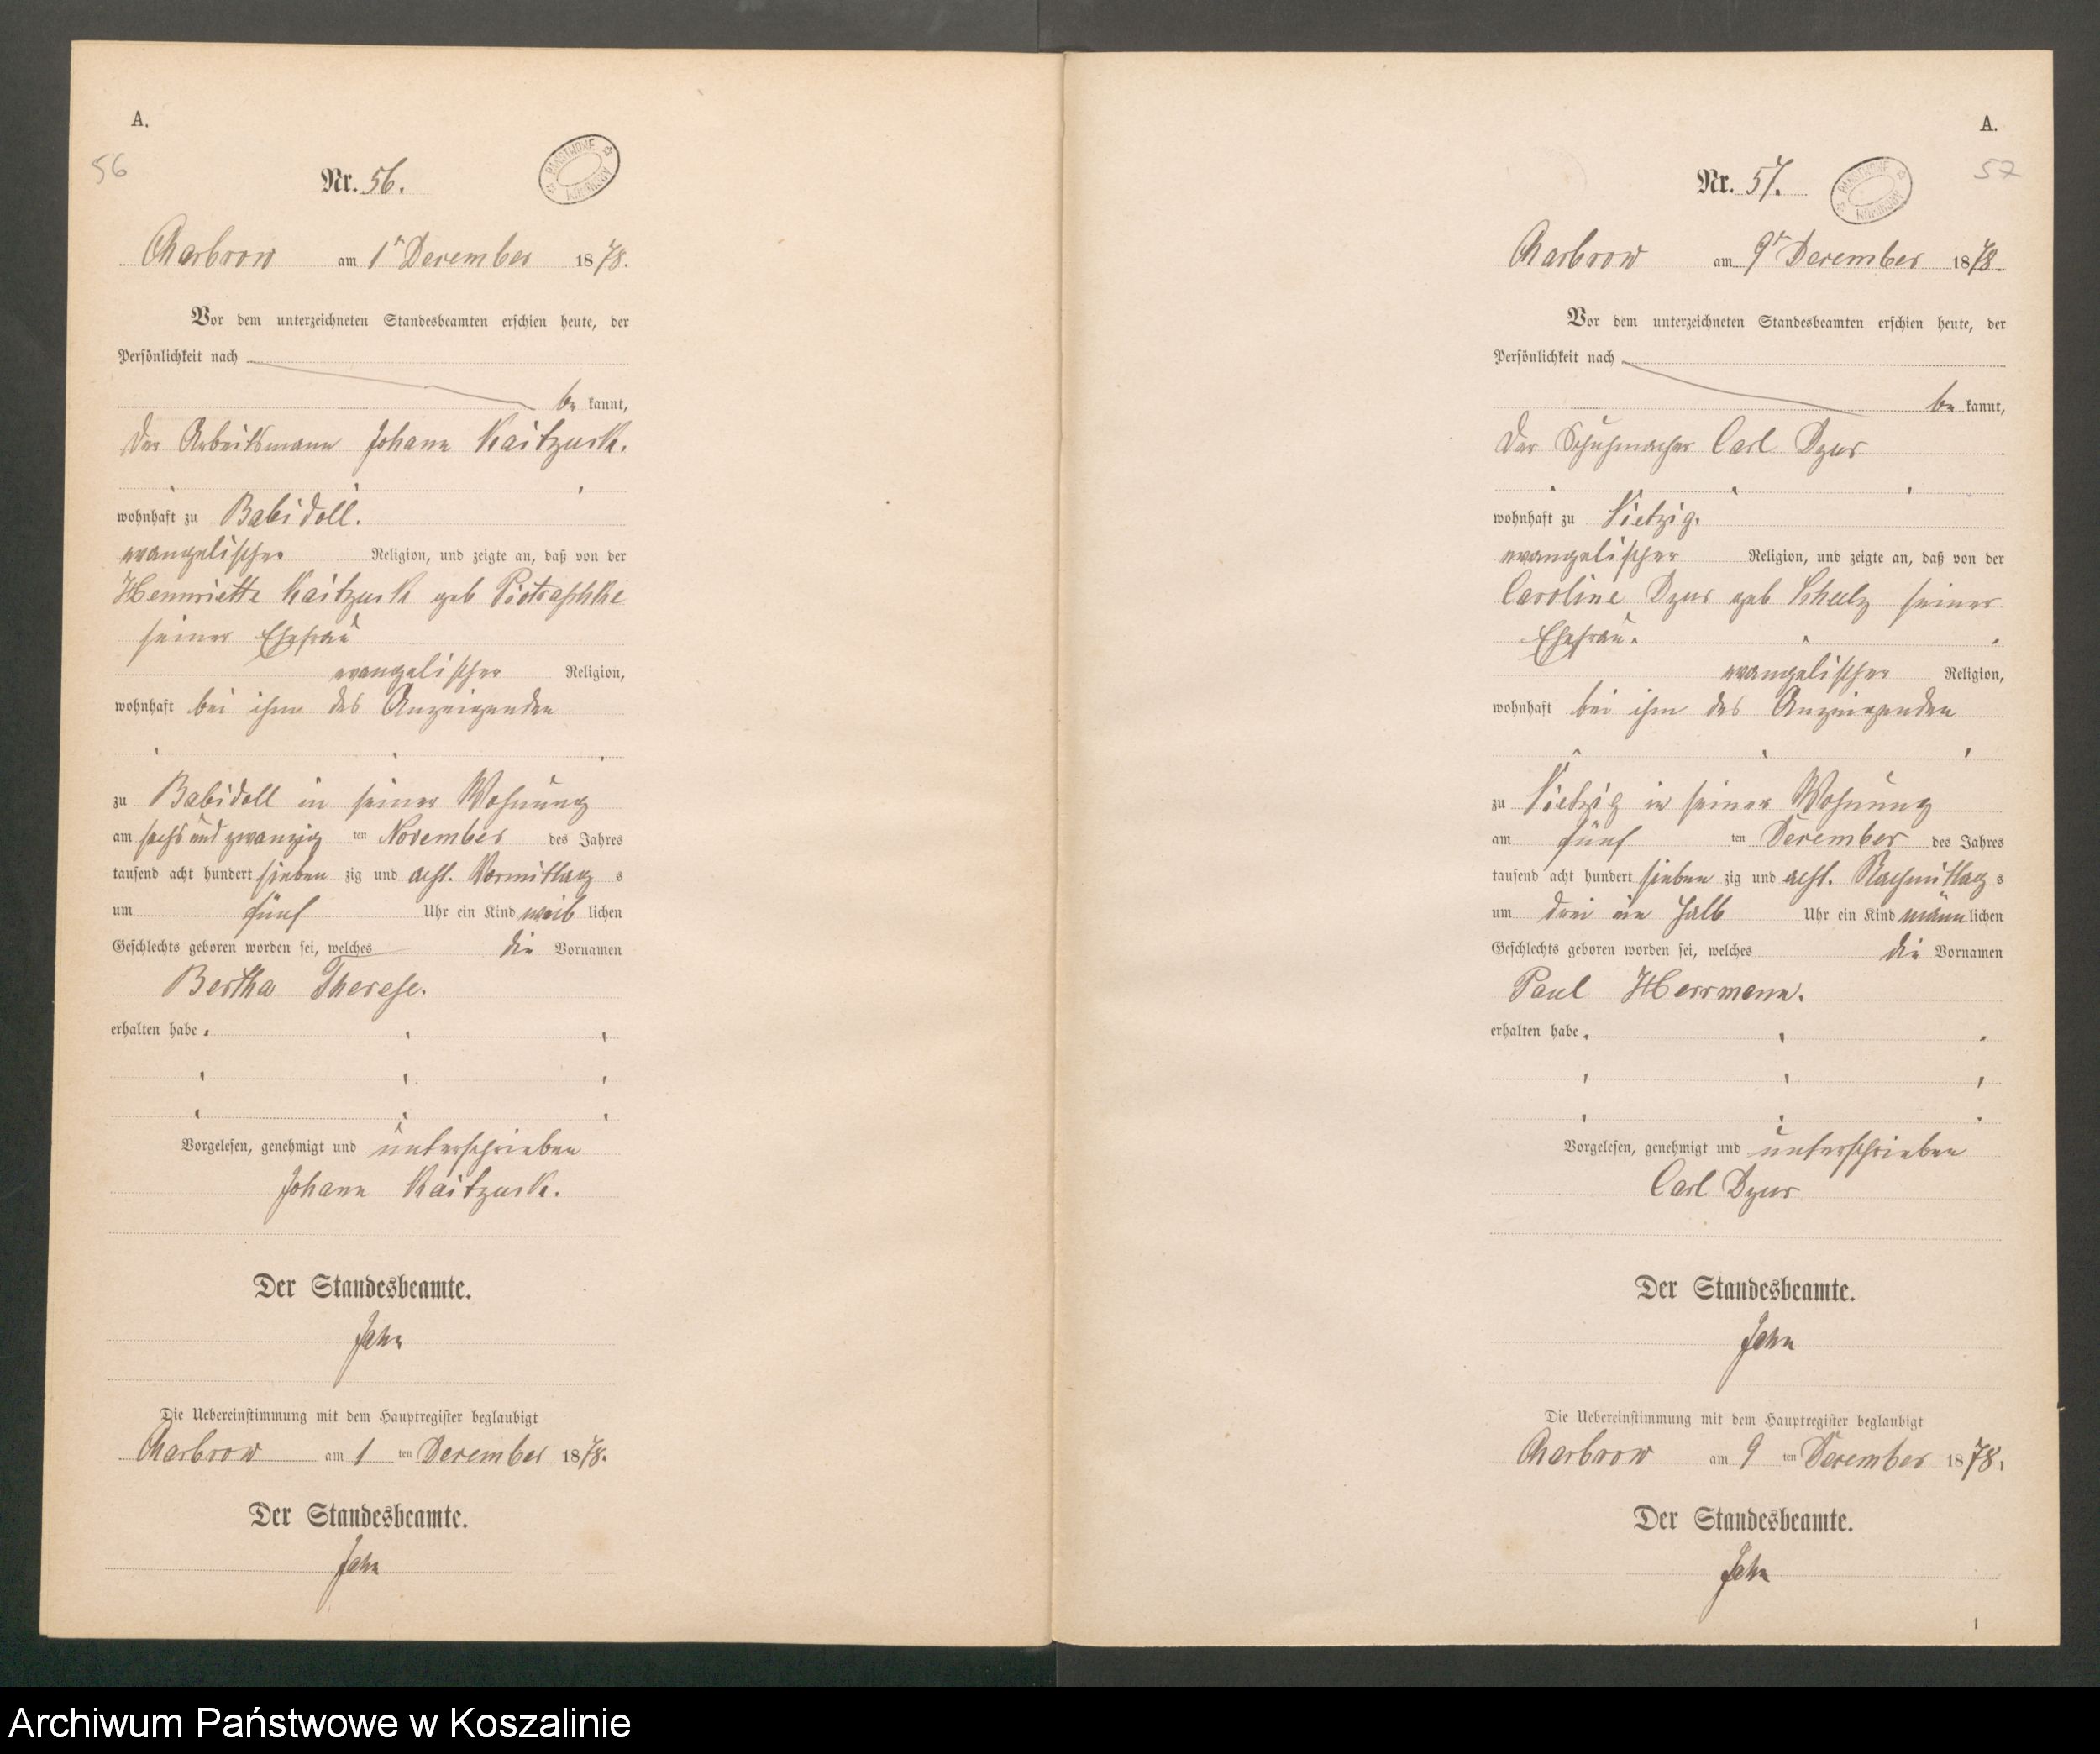 A.
56
Nr. 56.
PAŃSTWOWE
Charbrow am 1t December 1878.
Vor dem unterzeichneten Standesbeamten erschien heute, der
Persönlichkeit nach
be kannt,
der Arbeitsmann Johann Kaitzurk.
wohnhaft zu Babidoll.
evangelischer Religion, und zeigte an, daß von der
Hennriette Kaitzurk geb Pietraschke
seiner Ehefrau
evangelischer Religion,
wohnhaft bei ihm des Anzeigenden
zu Babidoll in seiner Wohnung
am sechs und zwanzig ten November des Jahres
tausend acht hundert sieben zig und acht. Vormittag s
um fünf Uhr ein Kind weib lichen
Geschlechts geboren worden sei, welches die Vornamen
Bertha Therese.
erhalten habe.
Vorgelesen, genehmigt und unterschrieben
Johann Kaitzurk.
Der Standesbeamte.
Jahn
Die Uebereinstimmung mit dem Hauptregister beglaubigt
Charbrow am 1 ten December 1878.
Der Standesbeamte.
Jahn
A.
57
Nr. 57.
PAŃSTWOWE
Charbrow am 9t December 1878.
Vor dem unterzeichneten Standesbeamten erschien heute, der
Persönlichkeit nach
be kannt,
der Schuhmacher Carl Dzur
wohnhaft zu Vietzig.
evangelischer Religion, und zeigte an, daß von der
Caroline Dzur geb Schulz seiner
Ehefrau.
evangelischer Religion,
wohnhaft bei ihm des Anzeigenden
zu Vietzig in seiner Wohnung
am fünf ten December des Jahres
tausend acht hundert sieben zig und acht. Nachmittag s
um drei ein halb Uhr ein Kind männ lichen
Geschlechts geboren worden sei, welches die Vornamen
Paul Herrmann.
erhalten habe.
Vorgelesen, genehmigt und unterschrieben
Carl Dzur
Der Standesbeamte.
Jahn
Die Uebereinstimmung mit dem Hauptregister beglaubigt
Charbrow am 9 ten December 1878.
Der Standesbeamte.
Jahn
1
Archiwum Państwowe w Koszalinie